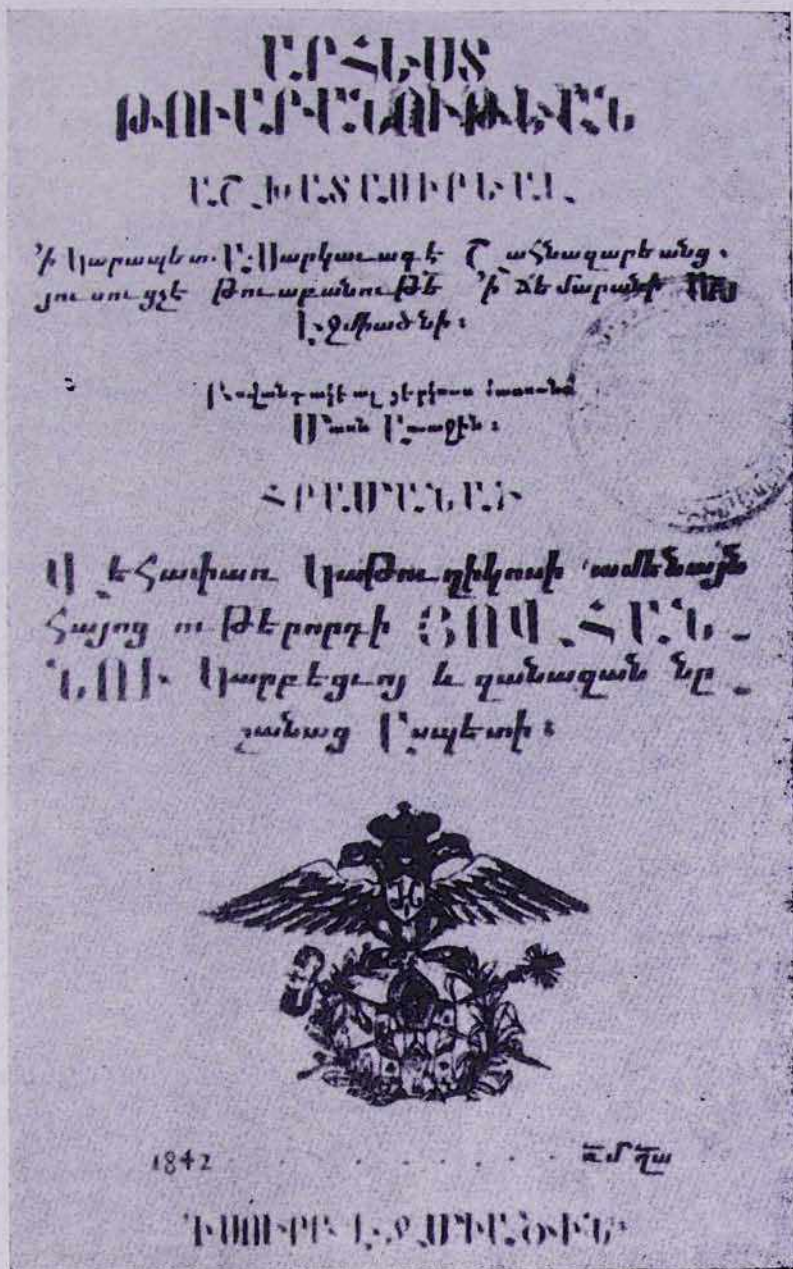 ԱՐՀԵՍՏ
ԹՈՒԱԲԱՆՈՒԹԵԱՆ
ԱՇԽԱՏԱՍԻՐԵԱԼ
՚Ի Կարապետ Մ: Սարկաւագէ Շահնազարեանց.
յուսուցչէ Թուաբանութե ՚ի ճեմարանի
Էջմիածնի:
Մասն Առաջին:
ՀՐԱՄԱՆԱՒ
Վեհափառ Կաթուղիկոսի ամենայն
Հայոց ութերորդի ՅՈՎՀԱՆ-
ՆՈՒ Կարբեցւոյ և զանազան նը-
շանաց Ասպետի:
1842 . . . . . .
Ի ՍՈՒՐԲ ԷՋՄԻԱԾԻՆ